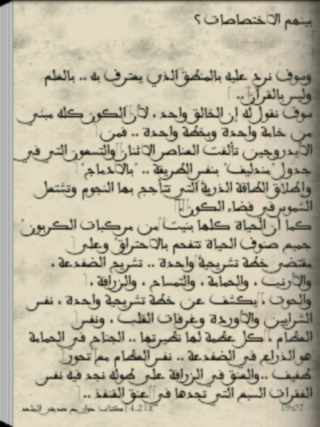 بينهم الاختصاصات ؟
وسوف نرد عليه بالمنطق الذي يعترف به .. بالعلم
وليس بالقرآن ..
سوف نقول له إن الخالق واحد ، لأن الكون كله مبني
من خامة واحدة وبخطة واحدة .. فمن
الايدروجين تألفت العناصر الاثنان والتسعون التي في
جدول "مندليف" بنفس الطريقة .. "بالادماج"
وإطلاق الطاقة الذرية التي تتأجج بها النجوم وتشتعل
الشموس في فضاء الكون
كما أن الحياة كلها بنيت من مركبات الكربون
جميع صنوف الحياة تتفحم بالاحتراق وعلى
مقتضى خطة تشريحية واحدة .. تشريح الضفدعة ،
والأرنب ، والحمامة ، والتمساح ، والزرافة ،
والحوت ، يكشف عن خطة تشريحية واحدة ، نفس
الشرايين والأوردة وغرفات القلب ، ونفس
العظام ، كل عظمة لها نظيرتها .. الجناح في الحمامة
هو الذراع في الضفدعة .. نفس العظام مع تحور
طفيف .. والعنق في الزرافة على طوله نجد فيه نفس
الفقرات السبع التي تجدها في عنق القنفذ ..
كتاب حوار مع صديقي الملحد